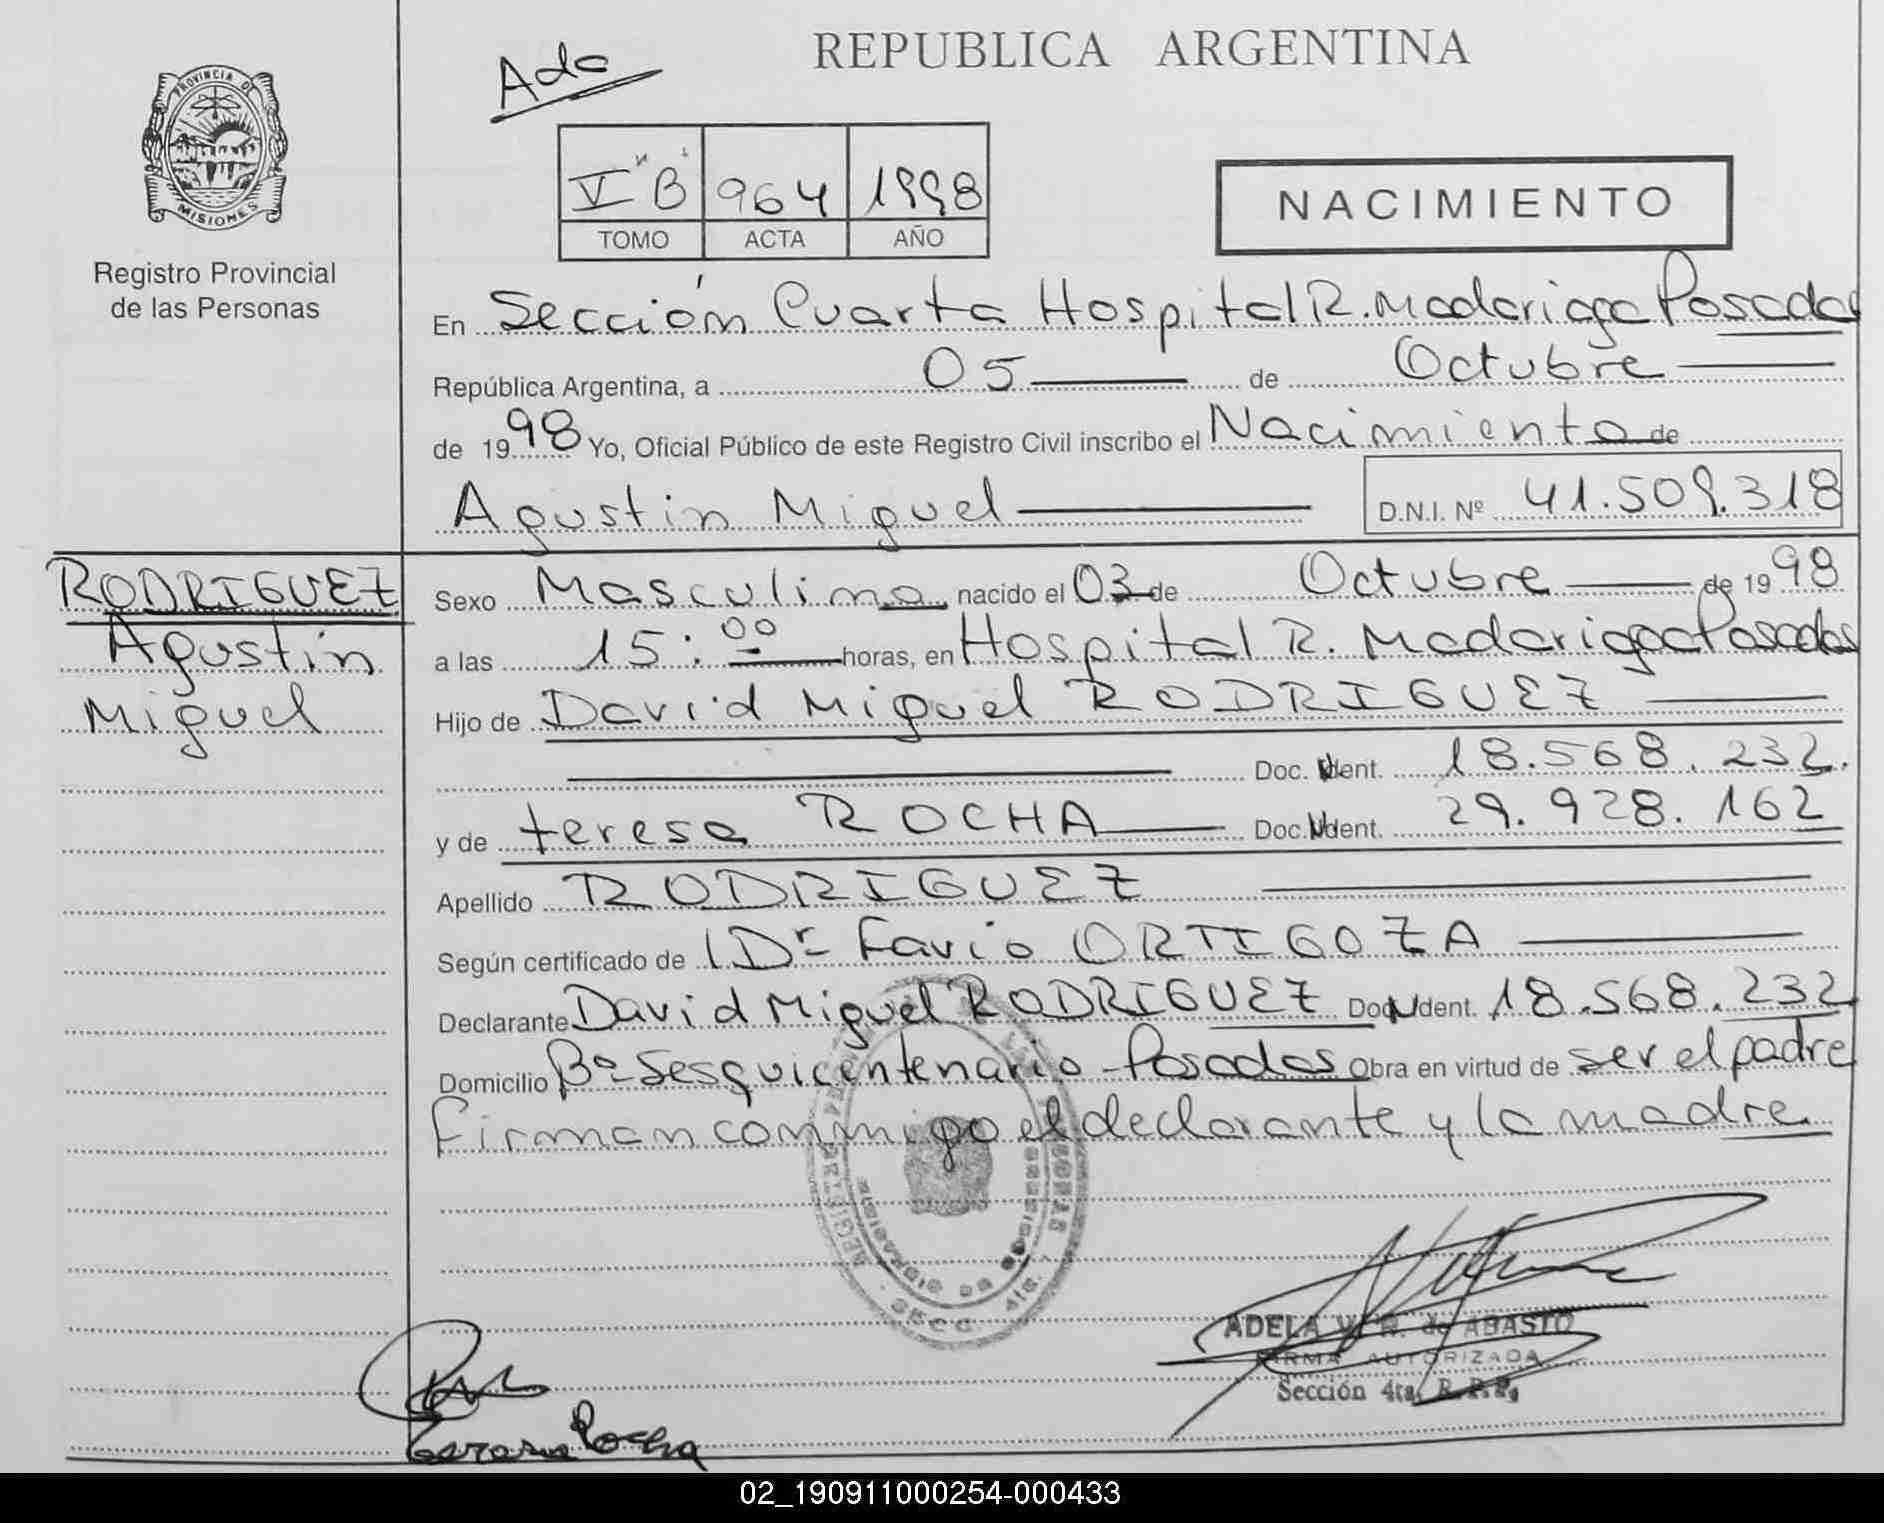 Ada
REPUBLICA ARGENTINA
PROVINCIA DE
MISIONES
Registro Provincial
de las Personas
V "B" 964 1998
TOMO ACTA AÑO
NACIMIENTO
En Sección Cuarta Hospital R. Madariaga Posadas
República Argentina, a 05 de Octubre
de 1998 Yo, Oficial Público de este Registro Civil inscribo el Nacimiento de
Agustin Miguel D.N.I. Nº 41.509.318
RODRIGUEZ
Agustin
Miguel
Sexo Masculino nacido el 03 de Octubre de 1998
a las 15:00 horas, en Hospital R. Madariaga Posadas
Hijo de David Miguel RODRIGUEZ
Doc. Ident. 18.568.232.
y de teresa ROCHA Doc. Ident. 29.928.162
Apellido RODRIGUEZ
Según certificado de Dr Favio ORTIGOZA
Declarante David Miguel RODRIGUEZ Doc. Ident. 18.568.232
Domicilio Bº Sesquicentenario - Posadas Obra en virtud de ser el padre
Firman conmigo el declarante y la madre.
ADELA de ABASTO
FIRMA AUTORIZADA
Sección 4ta. R.P.P.
Rocha
02_190911000254-000433